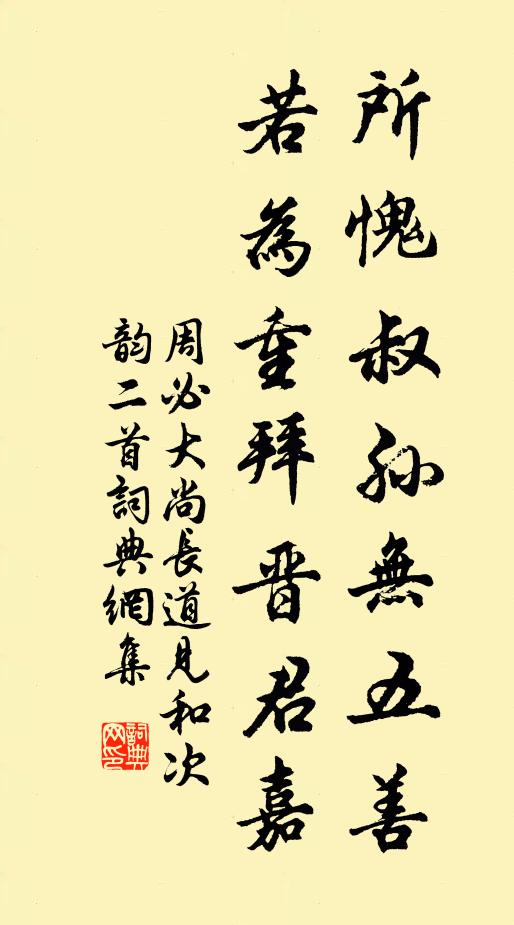 所愧叔孙無五善
若為重拜晋君嘉
周必大尚長道見和次
韵二首詞典網集
詞典
网印